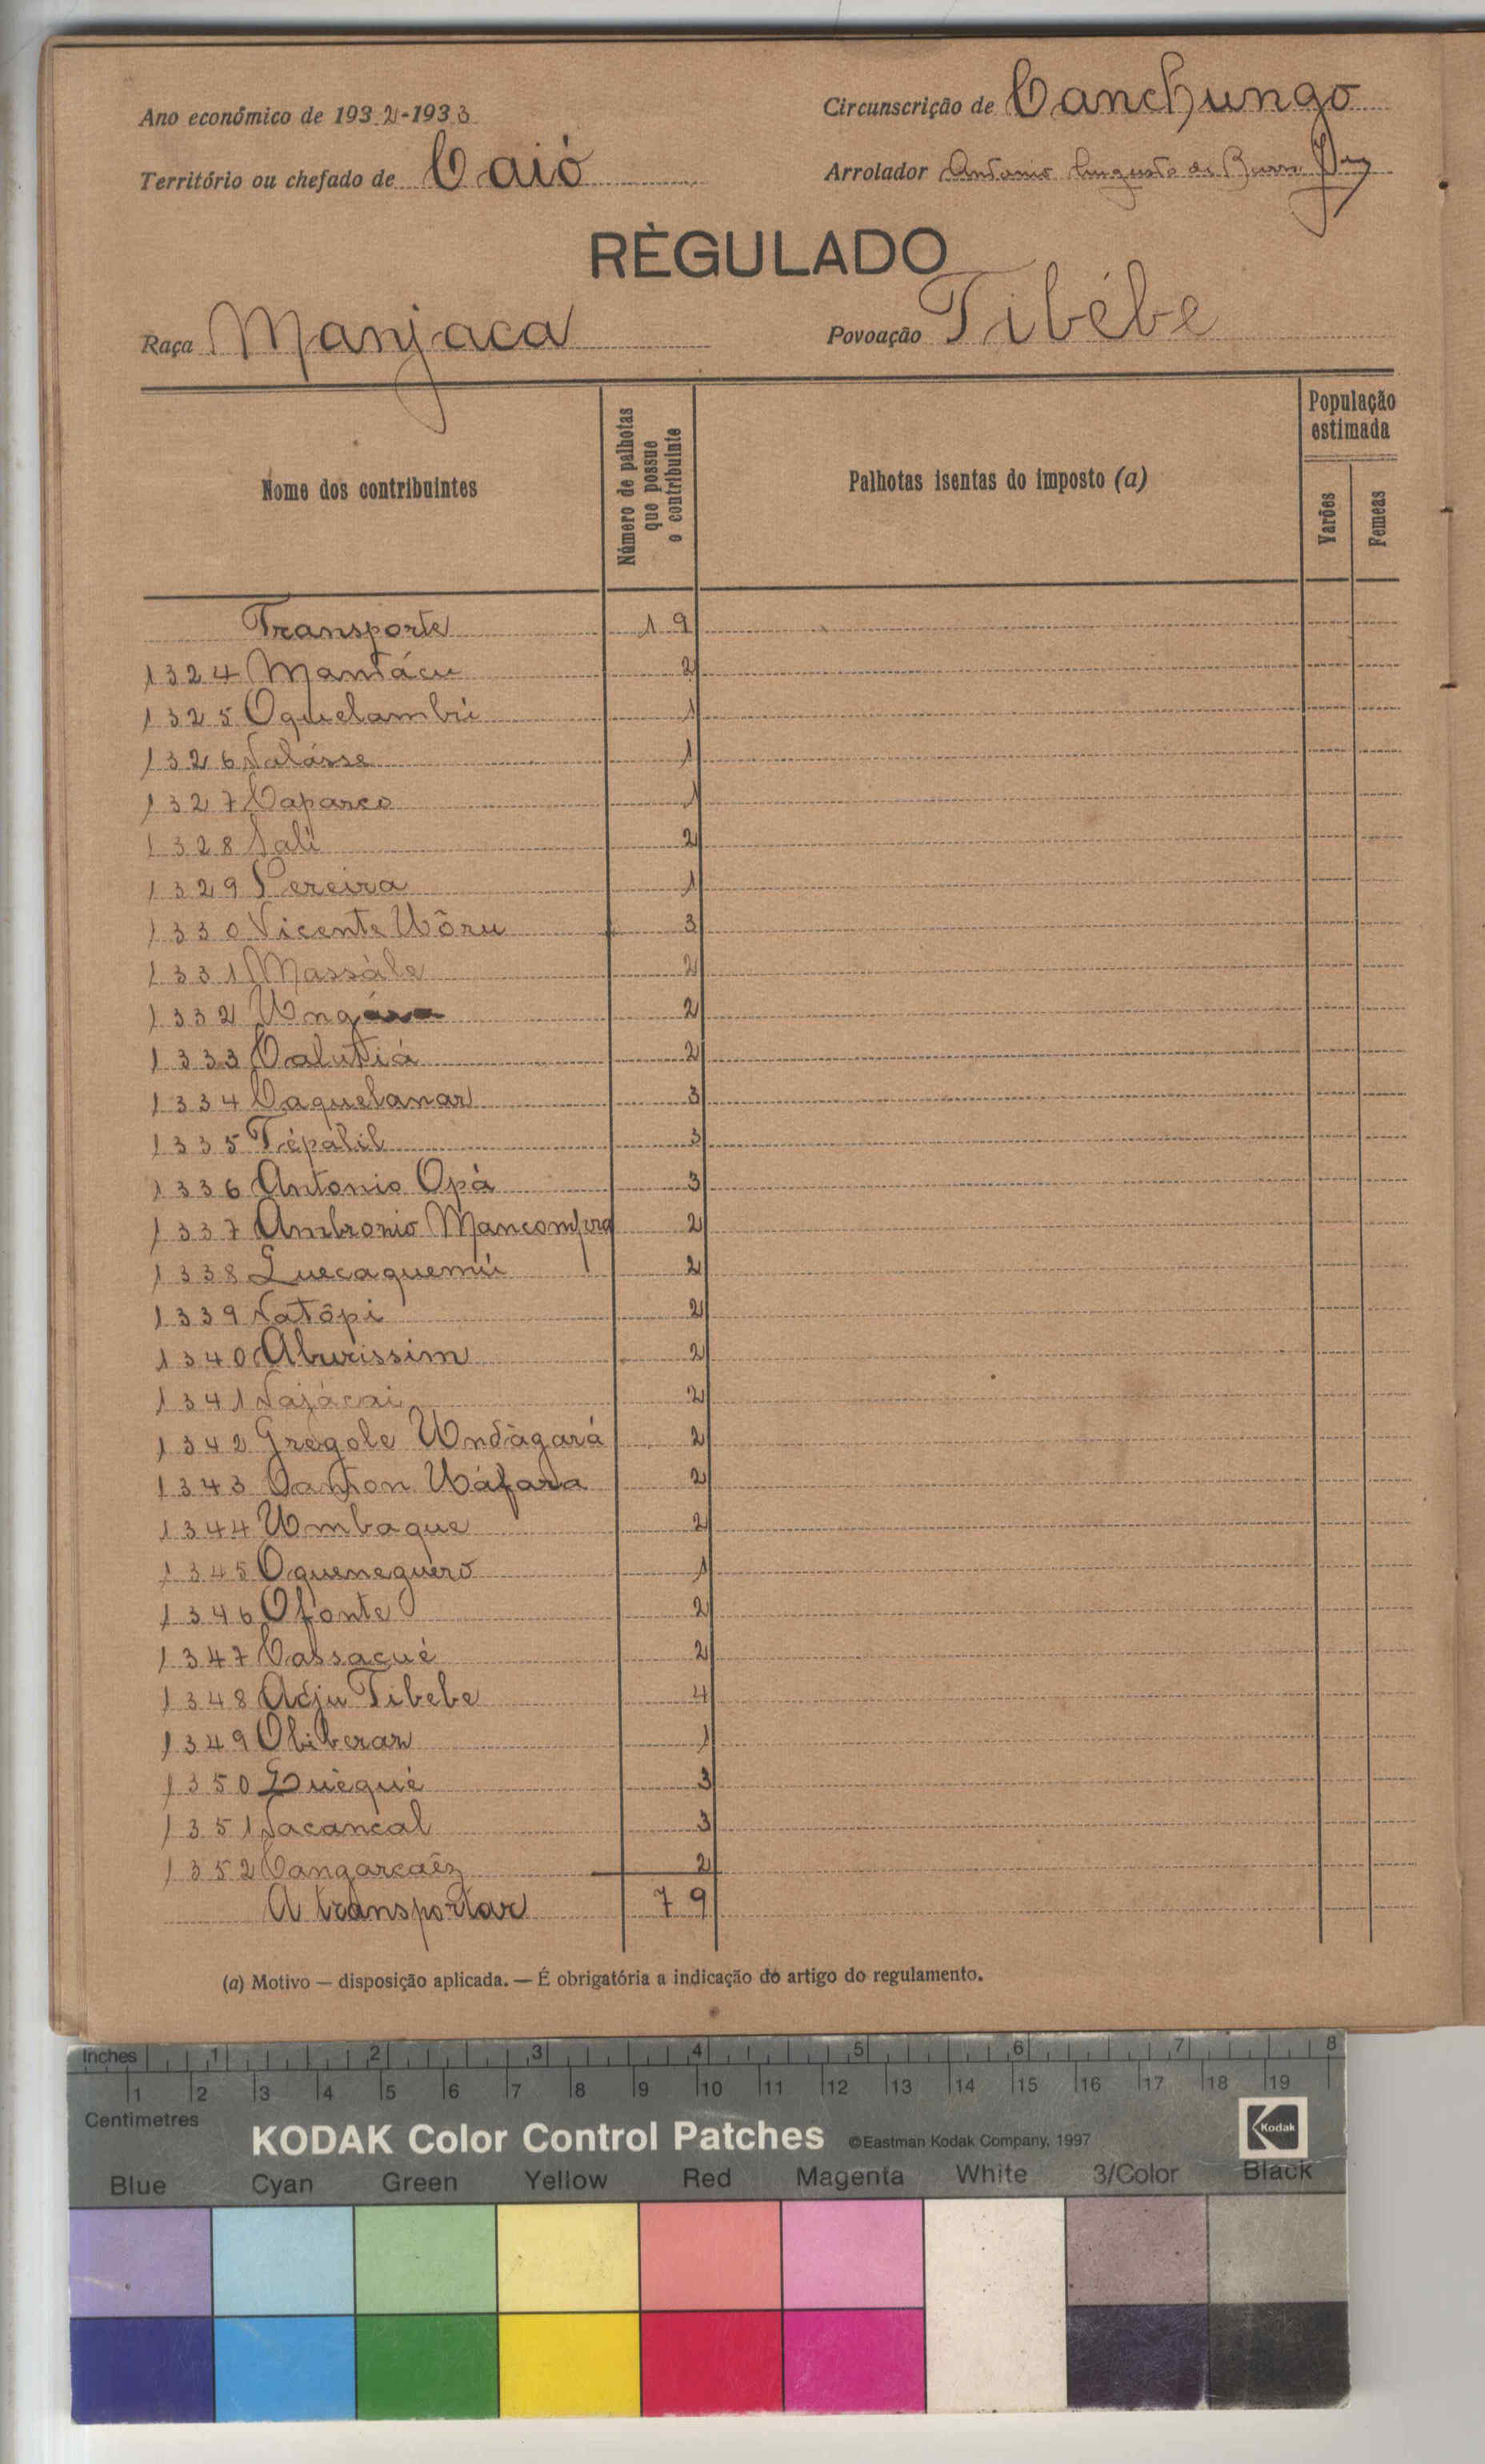 Ano económico de 1932-1933
Circunscrição de Canchungo
Território ou chefado de Caió
Arrolador Antonio Augusto de Barros
RÈGULADO
Raça Manjaca
Povoação Tibébe
Nome dos contribuintes
Número de palhotas que possue o contribuinte
Palhotas isentas do imposto (a)
População estimada
Varões
Femeas
Transporte 19
1324 Mantácu 2
1325 Oquelambri 1
1326 Nalásse 1
1327 Caparco 1
1328 Sali 2
1329 Pereira 1
1330 Vicente Uôru 3
1331 Massále 2
1332 2
1333 Calutiá 2
1334 Caquelanar 3
1335 Tépálil 3
1336 Antonio Opá 3
1337 Ambronio 2
1338 2
1339 Natôpi 2
1340 Aburissim 2
1341 Najácai 2
1342 Gregole Undágará 2
1343 Uáfara 2
1344 Umbaque 2
1345 Oqueneguèro 1
1346 Ofonte 2
1347 Cassacué 2
1348 Adju Tibebe 4
1349 Obiberar 1
1350 3
1351 Nacancal 3
1352 Cangarcaêz 2
A transportar 79
(a) Motivo — disposição aplicada. — É obrigatória a indicação do artigo do regulamento.
Inches 1 2 3 4 5 6 7 8
1 2 3 4 5 6 7 8 9 10 11 12 13 14 15 16 17 18 19
Centimetres
KODAK Color Control Patches ©Eastman Kodak Company, 1997 Kodak
Blue Cyan Green Yellow Red Magenta White 3/Color Black